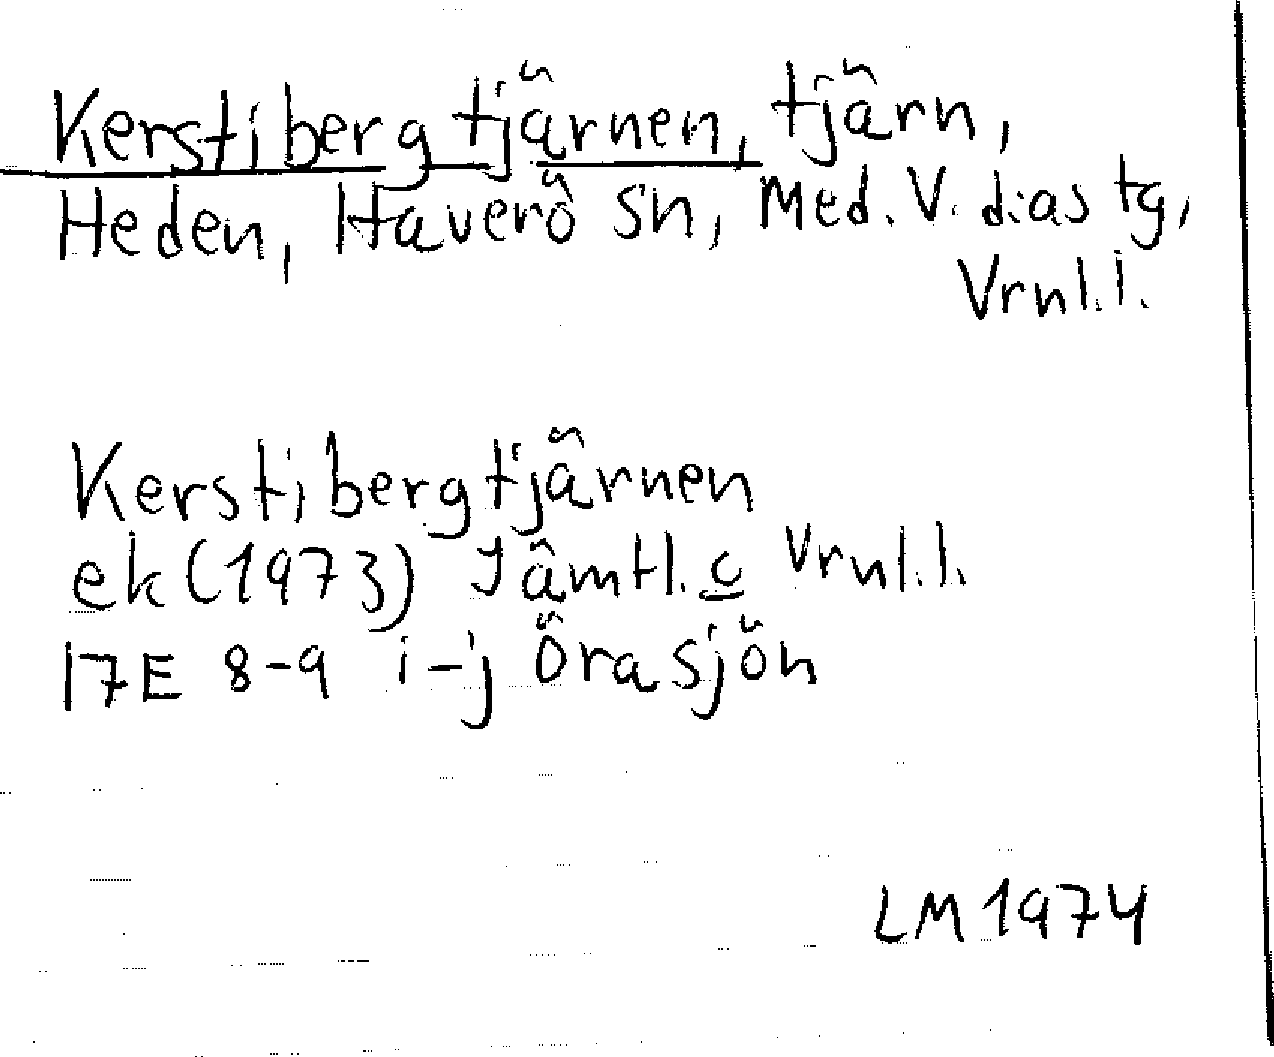 Kerstibergtjärnen, tjärn,
Heden, Haverö sn, Med. V. d:as tg,
Vrnl.l.
Kerstibergtjärnen
ek (1973) Jämtl. c Vrnl.l.
17E 8-9 i-j Örasjön
LM 1974